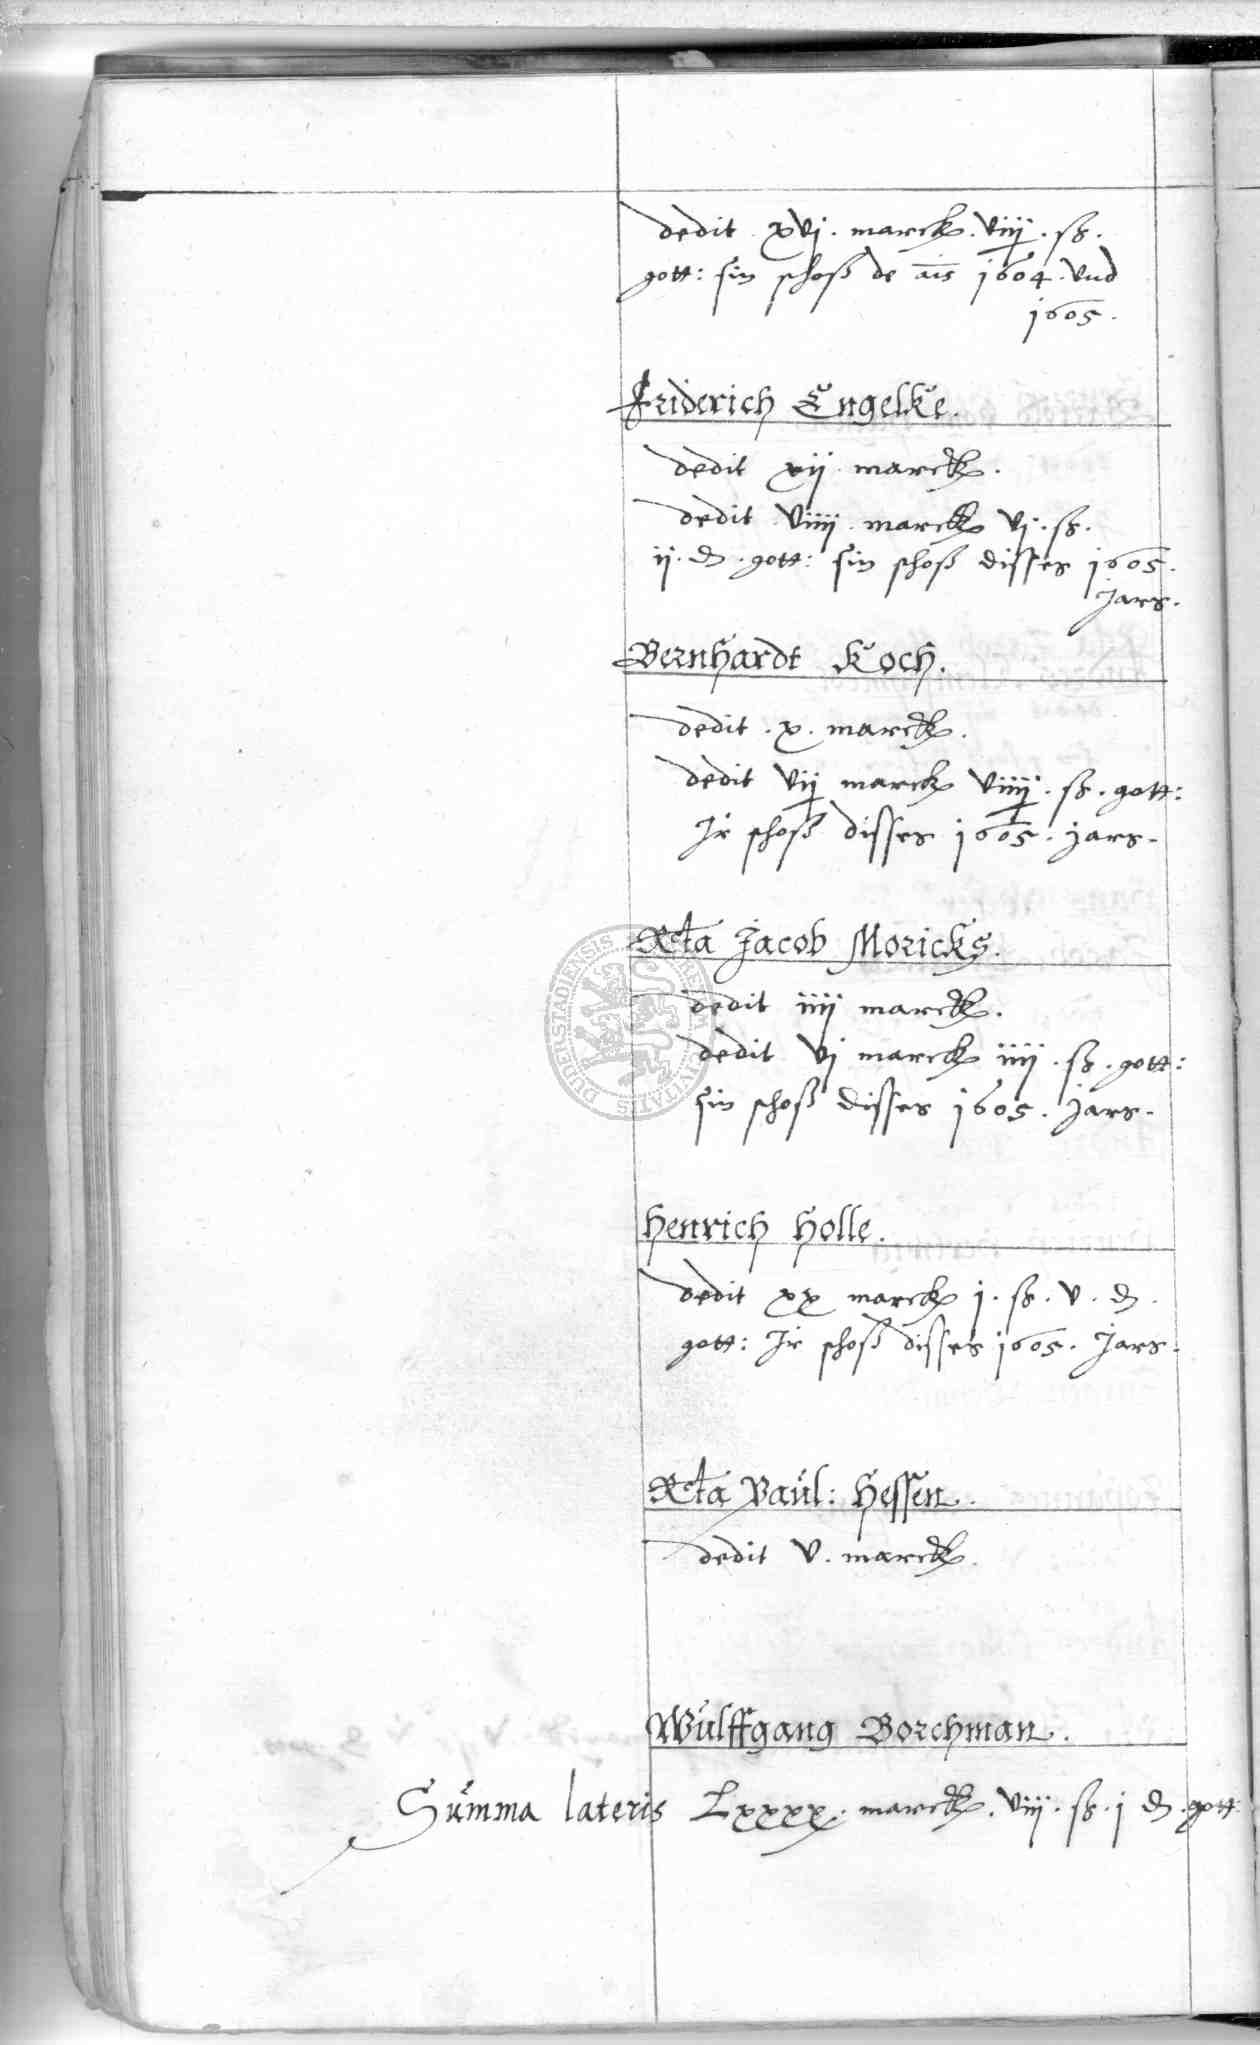 dedit xvj. marck. viiij. ß.
gott: sin schoß de ais 1604. vnd
1605.
Friderich Engelke.
dedit xij marck.
dedit viiij marck vj. ß.
ij. d. gott: sin schoß disses 1605.
Jars.
Bernhardt Koch.
dedit . x. marck.
dedit vij marck viiij. ß. gott:
Ir schoß disses 1605. jars.
Rcta Jacob Moricks.
dedit iiij marck.
dedit vj marck iiij . ß. gott:
sin schoß disses 1605. Jars.
Henrich Holle.
dedit xx marck j. ß. v. d.
gott: Ir schoß disses 1605. Jars.
Rcta Paul: Hessen.
dedit v. marck.
Wulffgang Borchman.
Summa lateris Lxxxx. marck. viij. ß. j d. gott:
SIGILLUM CIVITATIS DUDERSTADIENSIS